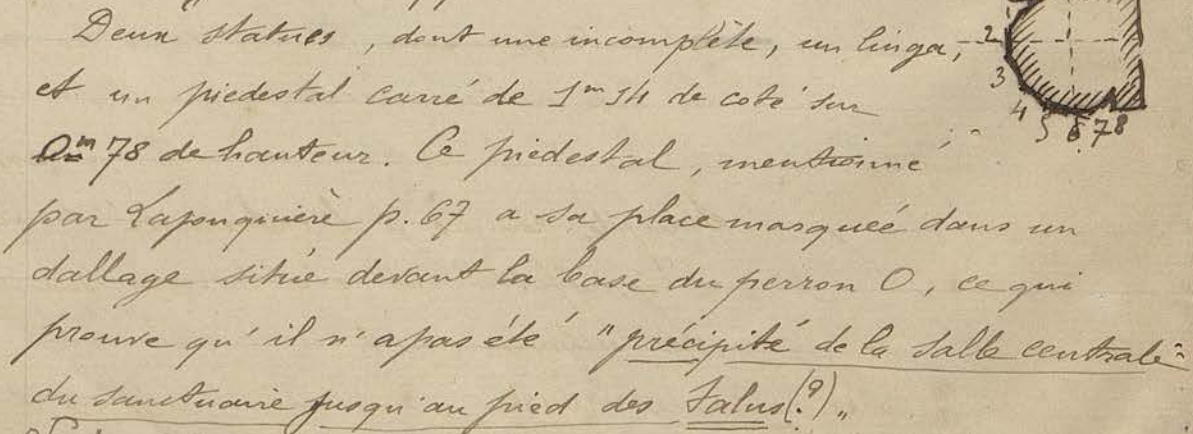 Deux statues, dont une incomplète, un linga,
et un piedestal carré de 1m14 de coté sur
0m78 de hauteur. Ce piedestal, mentionné
par Lajonquière p.67 a sa place masquée dans un
dallage situé devant la base du perron O, ce qui
prouve qu'il n'a pas été "précipité de la salle centrale
du sanctuaire jusqu'au pied des talus(?)"
2
3
4
5
6
7
8